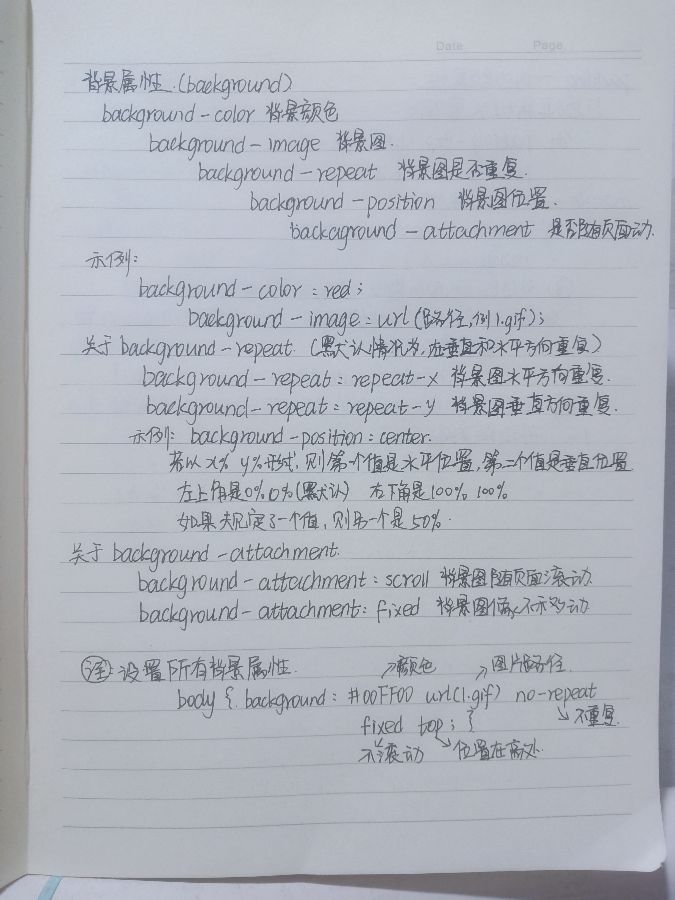 Date Page
背景属性.(background)
background-color 背景颜色
background-image 背景图.
background-repeat 背景图是否重复.
background-position 背景图位置.
backaground-attachment 是否随页面动.
示例:
background-color:red;
background-image:url(路径,例1.gif);
关于background-repeat (默认情况为,在垂直和水平方向重复)
background-repeat:repeat-x 背景图水平方向重复.
background-repeat:repeat-y 背景图垂直方向重复.
示例:background-position:center.
若以x% y%形式,则第一个值是水平位置,第二个值是垂直位置
左上角是0% 0%(默认) 右下角是100% 100%
如果规定了一个值,则另一个是50%.
关于background-attachment.
background-attachment:scroll 背景图随页面滚动.
background-attachment:fixed 背景图像不移动.
注:设置所有背景属性.
颜色 图片路径
body { background:#00FF00 url(1.gif) no-repeat
不重复.
fixed top; }
不滚动 位置在高处.